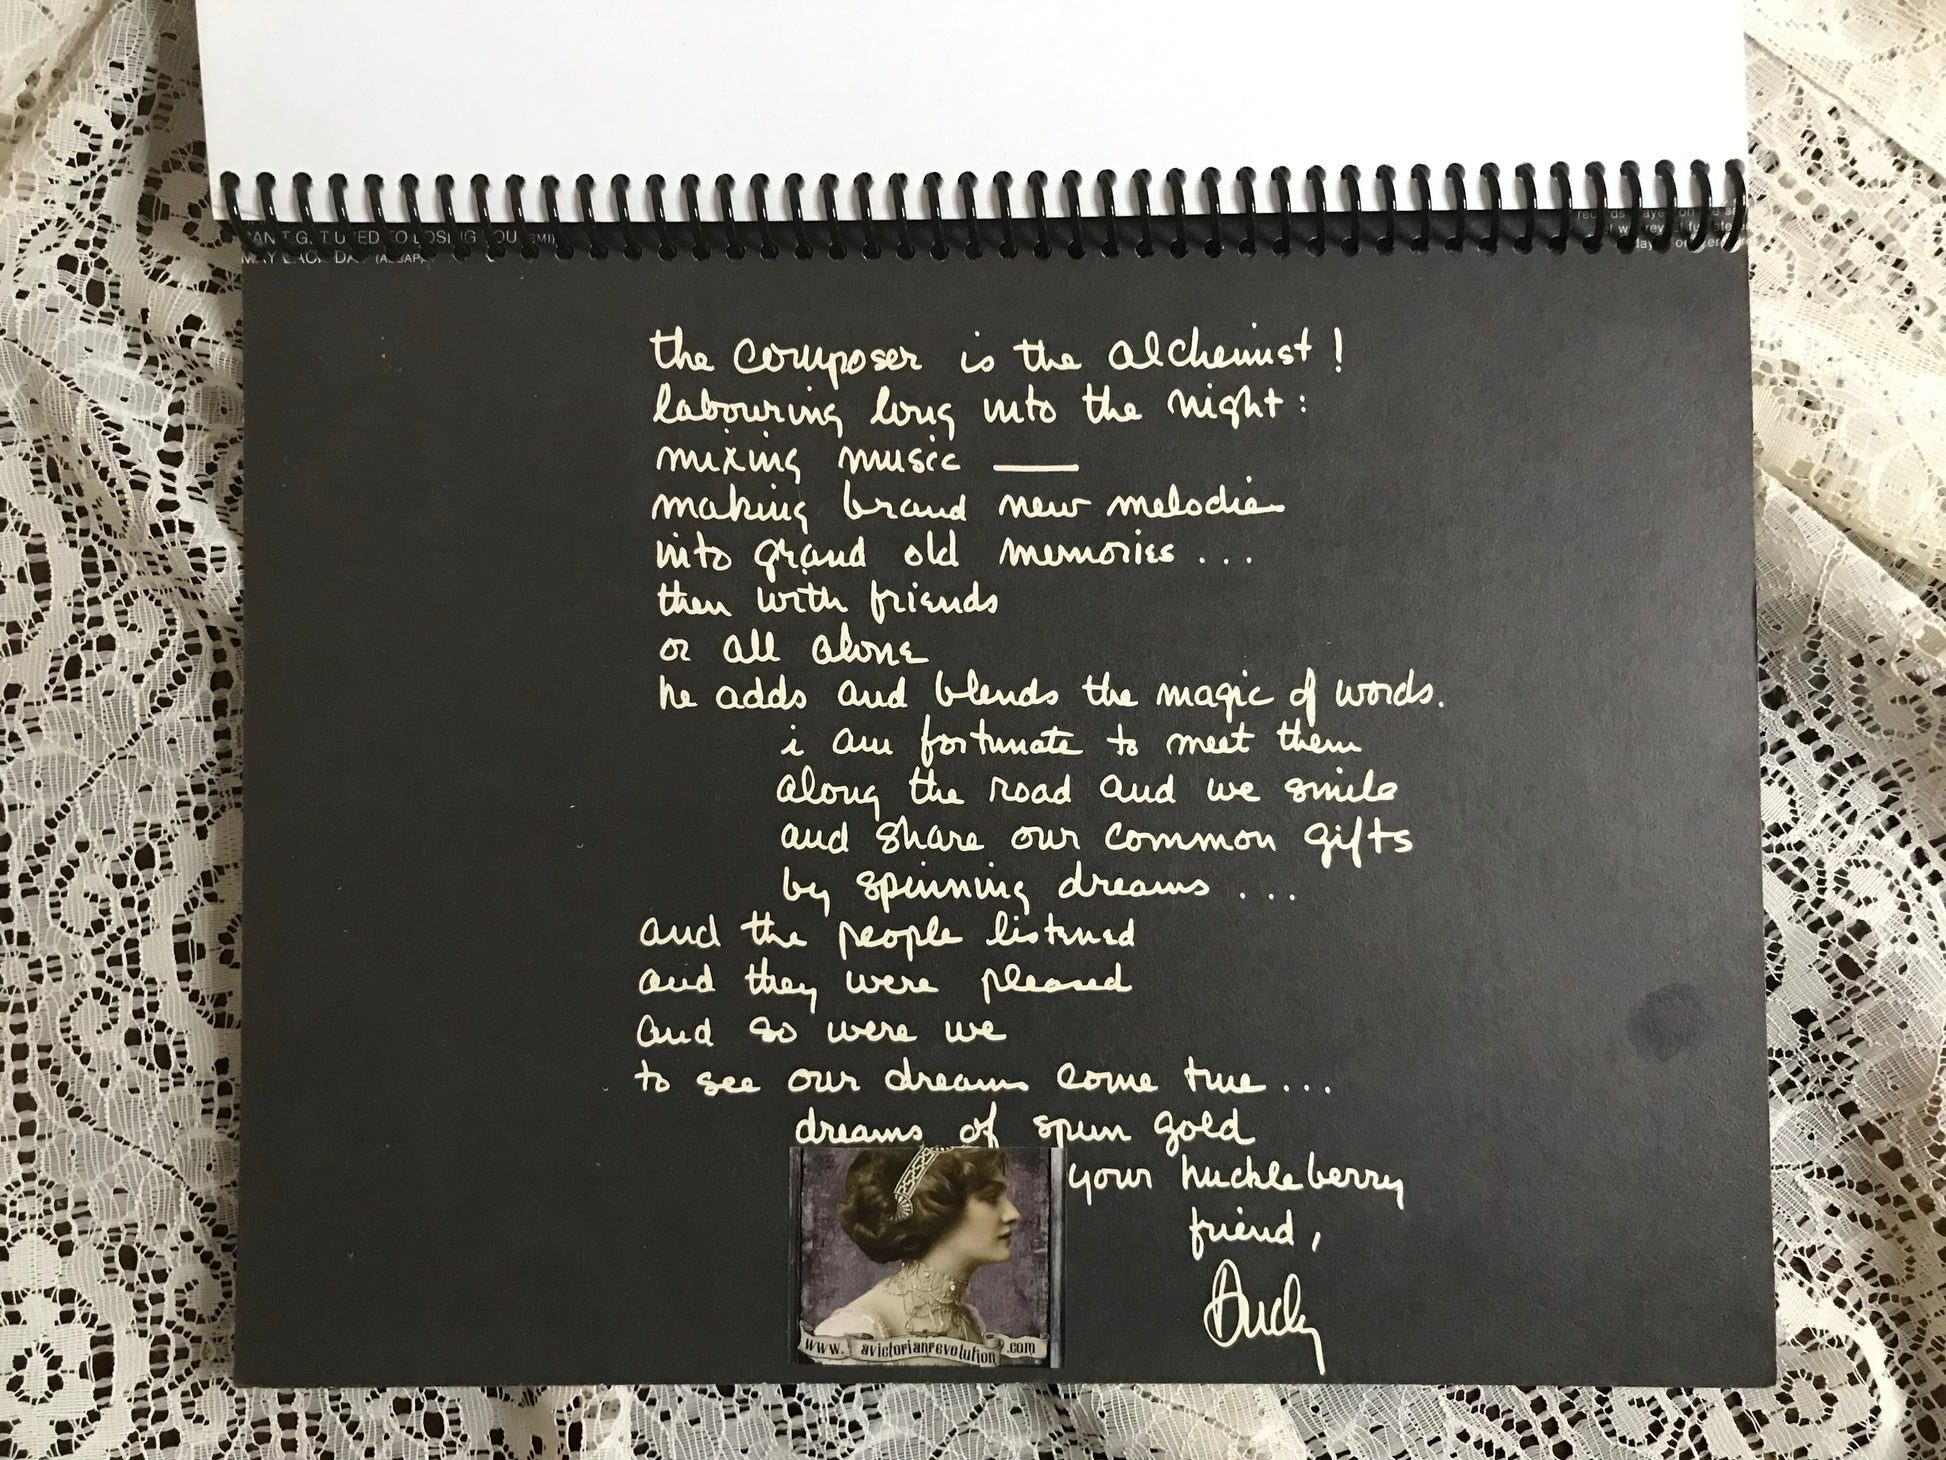 CAN'T GET USED TO LOSING YOU (BMI)
MAY EACH DAY (ASCAP)
records
the composer is the alchemist!
labouring long into the night:
mixing music —
making brand new melodies
into grand old memories...
then with friends
or all alone
he adds and blends the magic of words.
i am fortunate to meet them
along the road and we smile
and share our common gifts
by spinning dreams...
and the people listened
and they were pleased
and so were we
to see our dreams come true...
dreams of spun gold
your huckleberry
friend,
Andy
www.avictorianrevolution.com